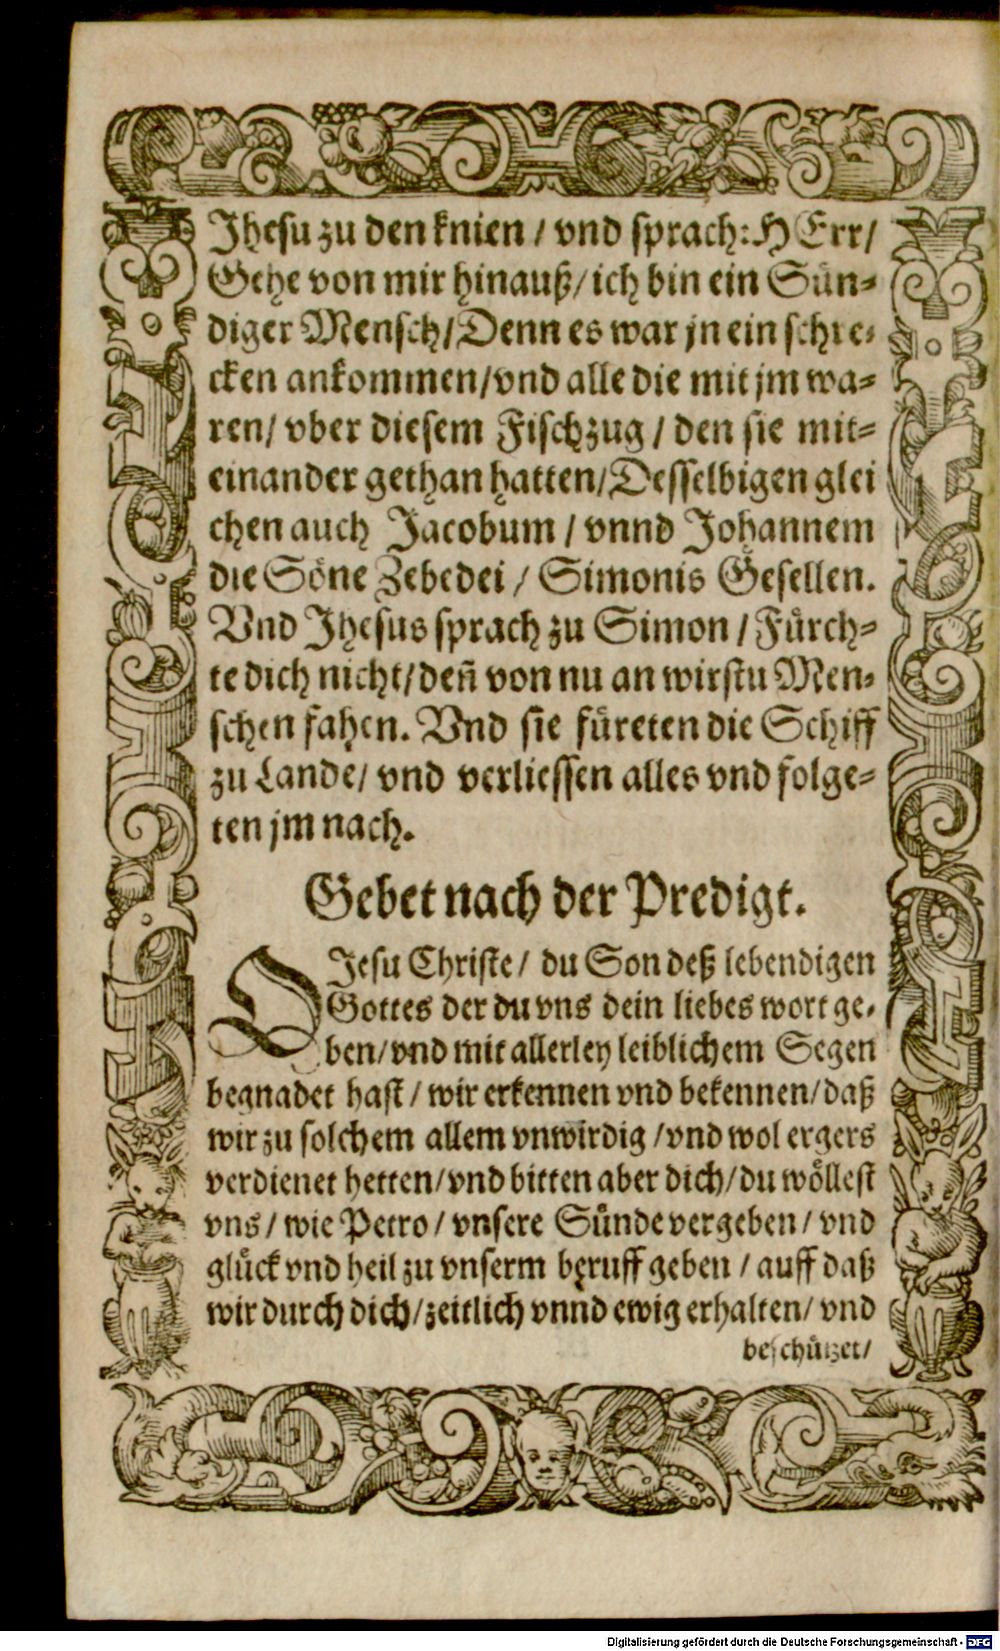 Jhesu zu den knien / vnd sprach: HErr /
Gehe von mir hinauß / ich bin ein Sün-
diger Mensch / Denn es war jn ein schre-
cken ankommen / vnd alle die mit jm wa-
ren / vber diesem Fischzug / den sie mit-
einander gethan hatten / Desselbigen glei
chen auch Jacobum / vnnd Johannem
die Söne Zebedei / Simonis Gesellen.
Vnd Jhesus sprach zu Simon / Fürch-
te dich nicht / deñ von nu an wirstu Men-
schen fahen. Vnd sie füreten die Schiff
zu Lande / vnd verliessen alles vnd folge-
ten jm nach.
Gebet nach der Predigt.
O Jesu Christe / du Son deß lebendigen
Gottes der du vns dein liebes wort ge-
ben / vnd mit allerley leiblichem Segen
begnadet hast / wir erkennen vnd bekennen / daß
wir zu solchem allem vnwirdig / vnd wol ergers
verdienet hetten / vnd bitten aber dich / du wöllest
vns / wie Petro / vnsere Sünde vergeben / vnd
glück vnd heil zu vnserm beruff geben / auff daß
wir durch dich / zeitlich vnnd ewig erhalten / vnd
beschützet /
Digitalisierung gefördert durch die Deutsche Forschungsgemeinschaft - DFG